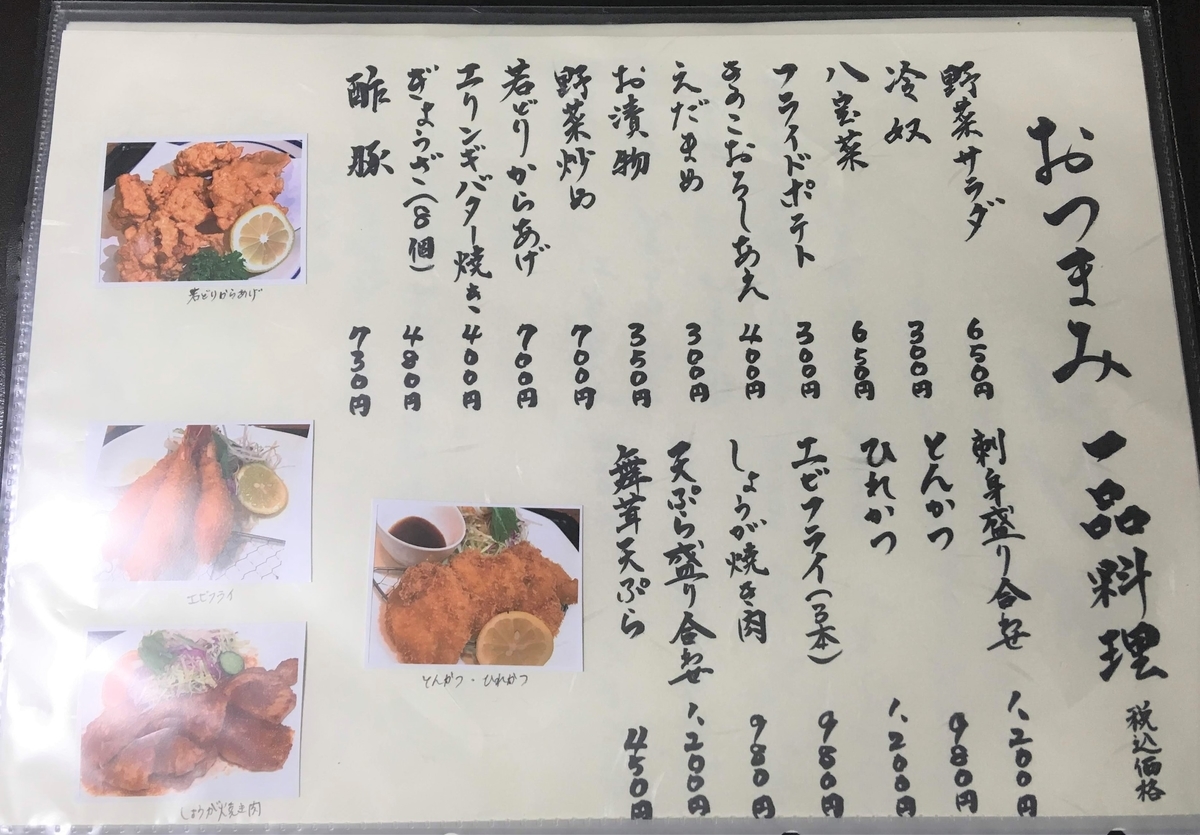 おつまみ 一品料理 税込価格
野菜サラダ 650円
冷奴 300円
八宝菜 650円
フライドポテト 300円
きのこおろしあえ 400円
えだまめ 300円
お漬物 350円
野菜炒め 700円
若どりからあげ 700円
エリンギバター焼き 400円
ぎょうざ(8個) 480円
酢豚 730円
刺身盛り合せ 1,200円
とんかつ 980円
ひれかつ 1,200円
エビフライ(3本) 980円
しょうが焼き肉 980円
天ぷら盛り合せ 1,200円
舞茸天ぷら 450円
若どりからあげ
エビフライ
とんかつ・ひれかつ
しょうが焼き肉